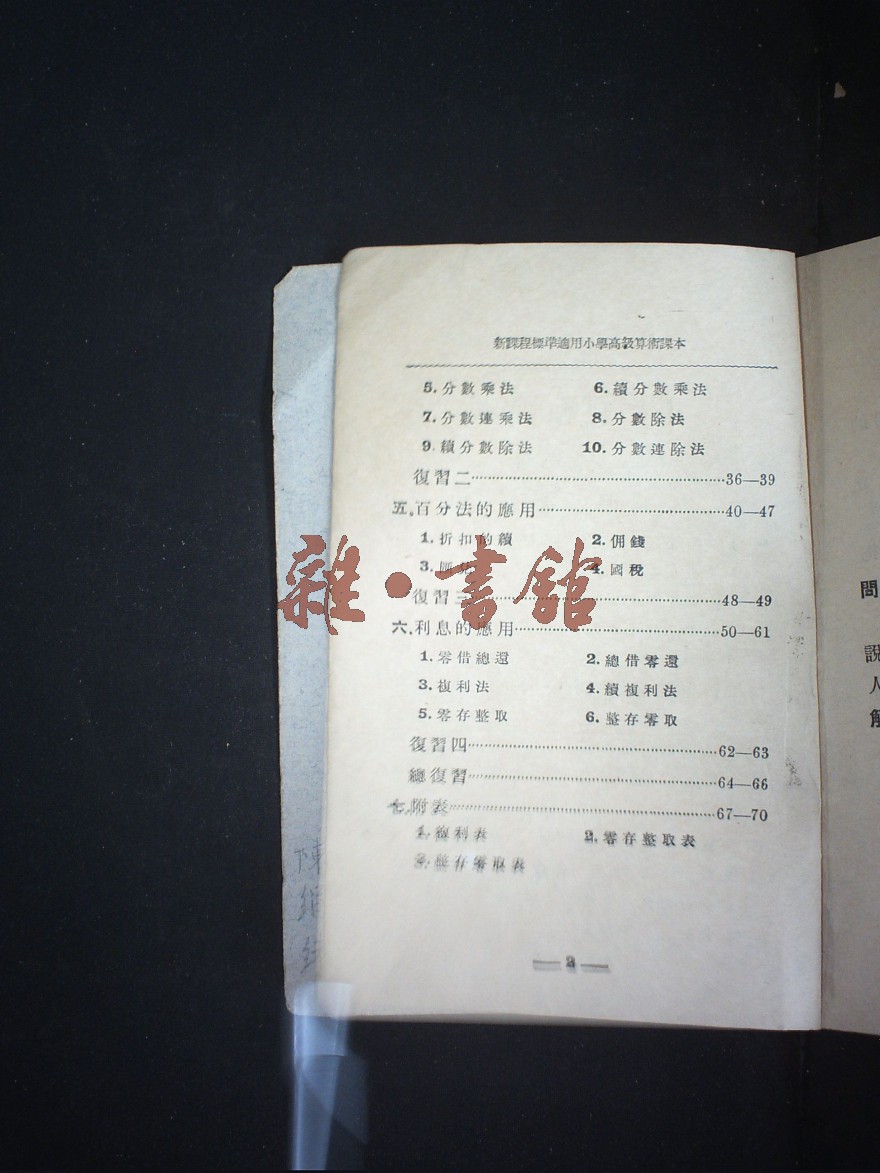 新課程標準適用小學高級算術課本
5. 分數乘法 6. 續分數乘法
7. 分數連乘法 8. 分數除法
9. 續分數除法 10. 分數連除法
復習二 36—39
五. 百分法的應用 40—47
1. 折扣的續 2. 佣錢
3. 4. 國稅
復習三 48—49
六. 利息的應用 50—61
1. 零借總還 2. 總借零還
3. 複利法 4. 續複利法
5. 零存整取 6. 整存零取
復習四 62—63
總復習 64—66
七. 附表 67—70
1. 複利表 2. 零存整取表
3. 整存零取表
— 2 —
雜·書館
問
說
人
解
陳